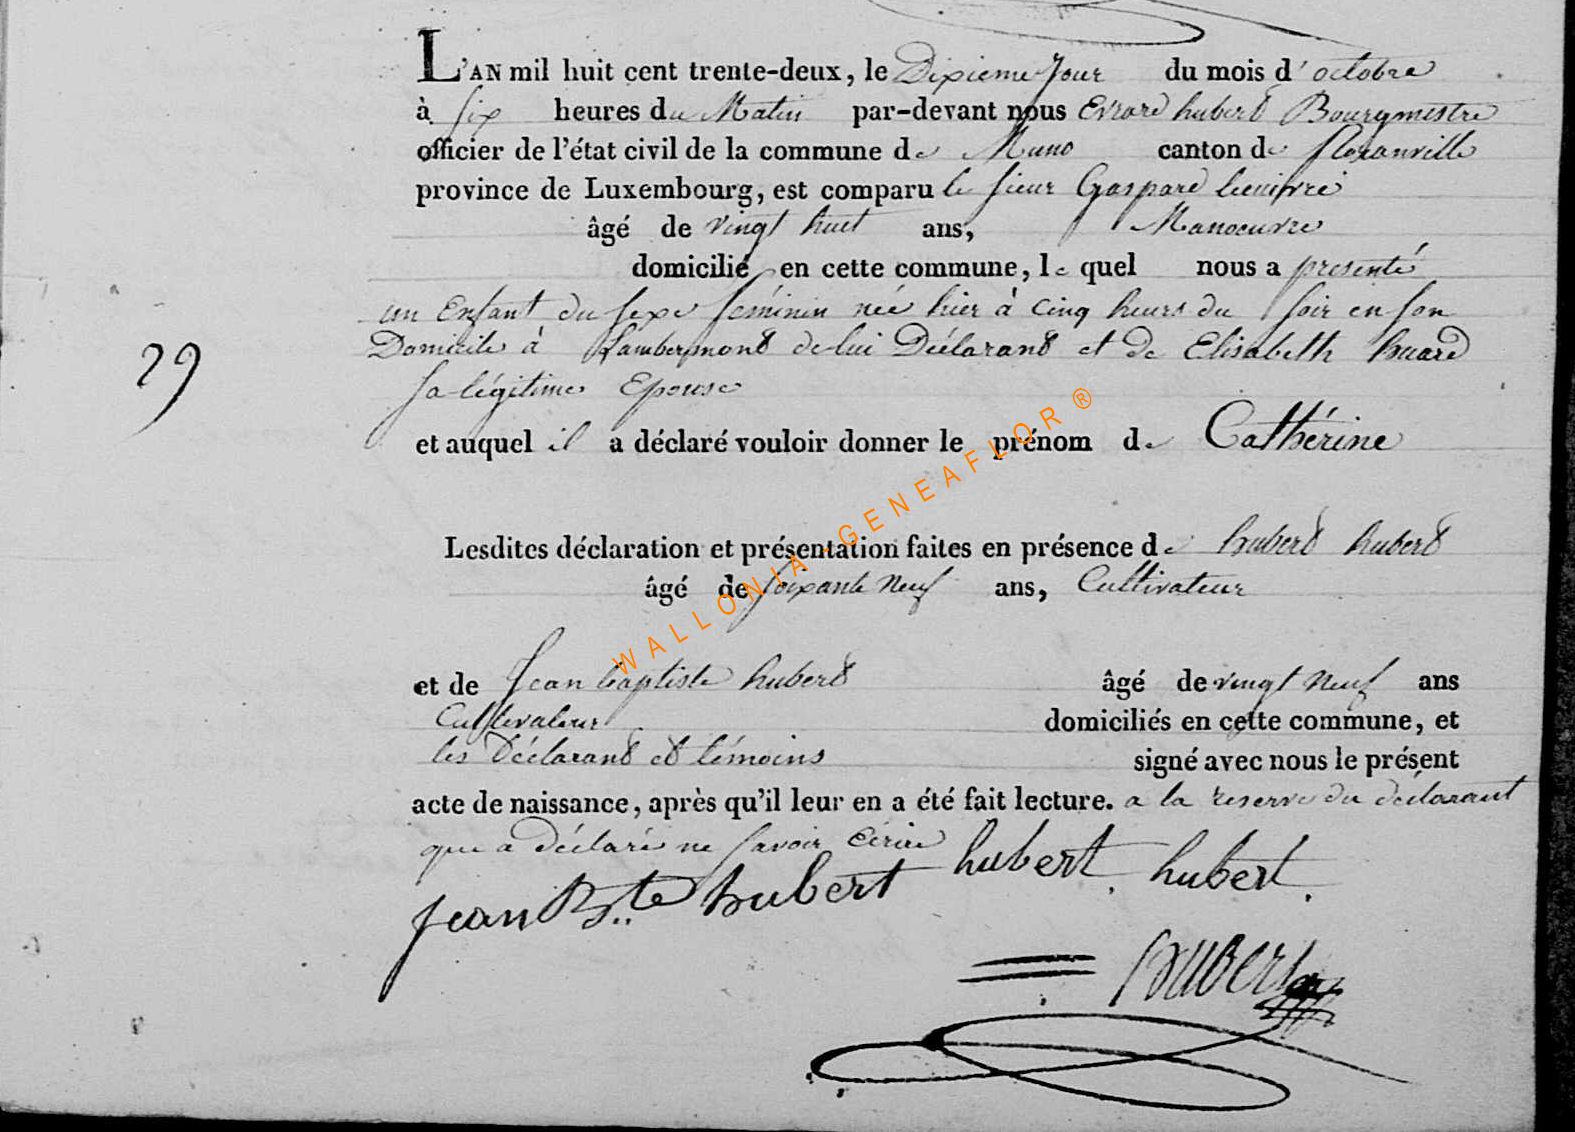 L'AN mil huit cent trente-deux, le Dixieme Jour du mois d'octobre
à six heures du Matin par-devant nous Evrard hubert Bourgmestre
officier de l'état civil de la commune de Muno canton de floranville
province de Luxembourg, est comparu le sieur Gaspard
âgé de vingt huit ans, Manoeuvre
domicilié en cette commune, le quel nous a presenté
un Enfant du sexe féminin née hier à cinq heurs du soir en son
Domicile à Lambermont de lui Déclarant et de Elisabeth huard
29
sa légitime Epouse
et auquel il a déclaré vouloir donner le prénom de Cathérine
Lesdites déclaration et présentation faites en présence de hubert hubert
âgé de soixante neuf ans, Cultivateur
et de Jean baptiste hubert âgé de vingt neuf ans
Cultivateur domiciliés en cette commune, et
les Déclarant et témoins signé avec nous le présent
acte de naissance, après qu'il leur en a été fait lecture. a la reserve du déclarant
que a déclaré ne savoir écrire
Jean Bte hubert hubert. hubert.
hubert
WALLONIA - GENEAFLOR ®